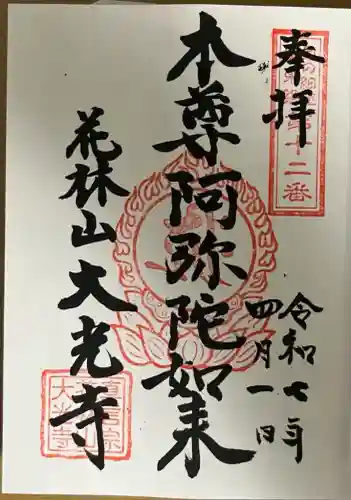 奉拝
令和七年
四月一日
本尊阿弥陀如来
花林山大光寺
十二番
真言宗
大光寺